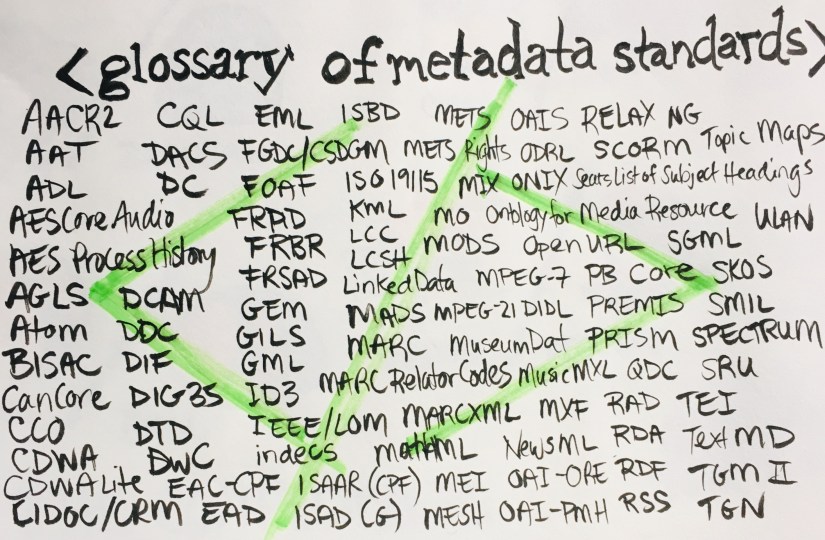 <glossary of metadata standards>
AACR2 CQL EML ISBD METS OAIS RELAX NG
AAT DACS FGDC/CSDGM METS Rights ODRL SCORM Topic Maps
ADL DC FOAF ISO 19115 MIX ONIX Sears List of Subject Headings
AES Core Audio FRAD KML MO Ontology for Media Resource ULAN
AES Process History FRBR LCC MODS Open URL SGML
LCSH
AGLS DCAM FRSAD Linked Data MPEG-7 PB Core SKOS
Atom DDC GEM MADS MPEG-21 DIDL PREMIS SMIL
BISAC DIF GILS MARC MuseumDat PRISM SPECTRUM
CanCore DIG35 GML MARC Relator Codes MusicMXL QDC SRU
CCO DTD ID3 MARCXML MXF RAD TEI
CDWA DWC IEEE/LOM mathML NewsML RDA Text MD
CDWA Lite EAC-CPF indecs MEI OAI-ORE RDF TGM II
CIDOC/CRM EAD ISAAR (CPF) MESH OAI-PMH RSS TGN
ISAD (G)